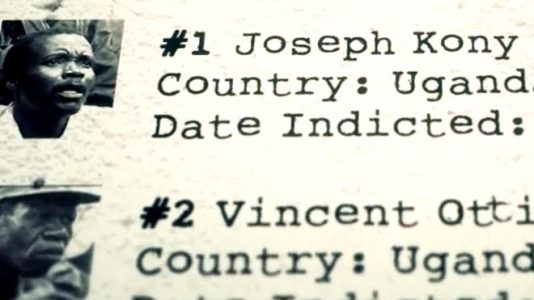 #1 Joseph Kony
Country: Ugand
Date Indicted:
#2 Vincent Otti
Country: Ugand
Date Indicted